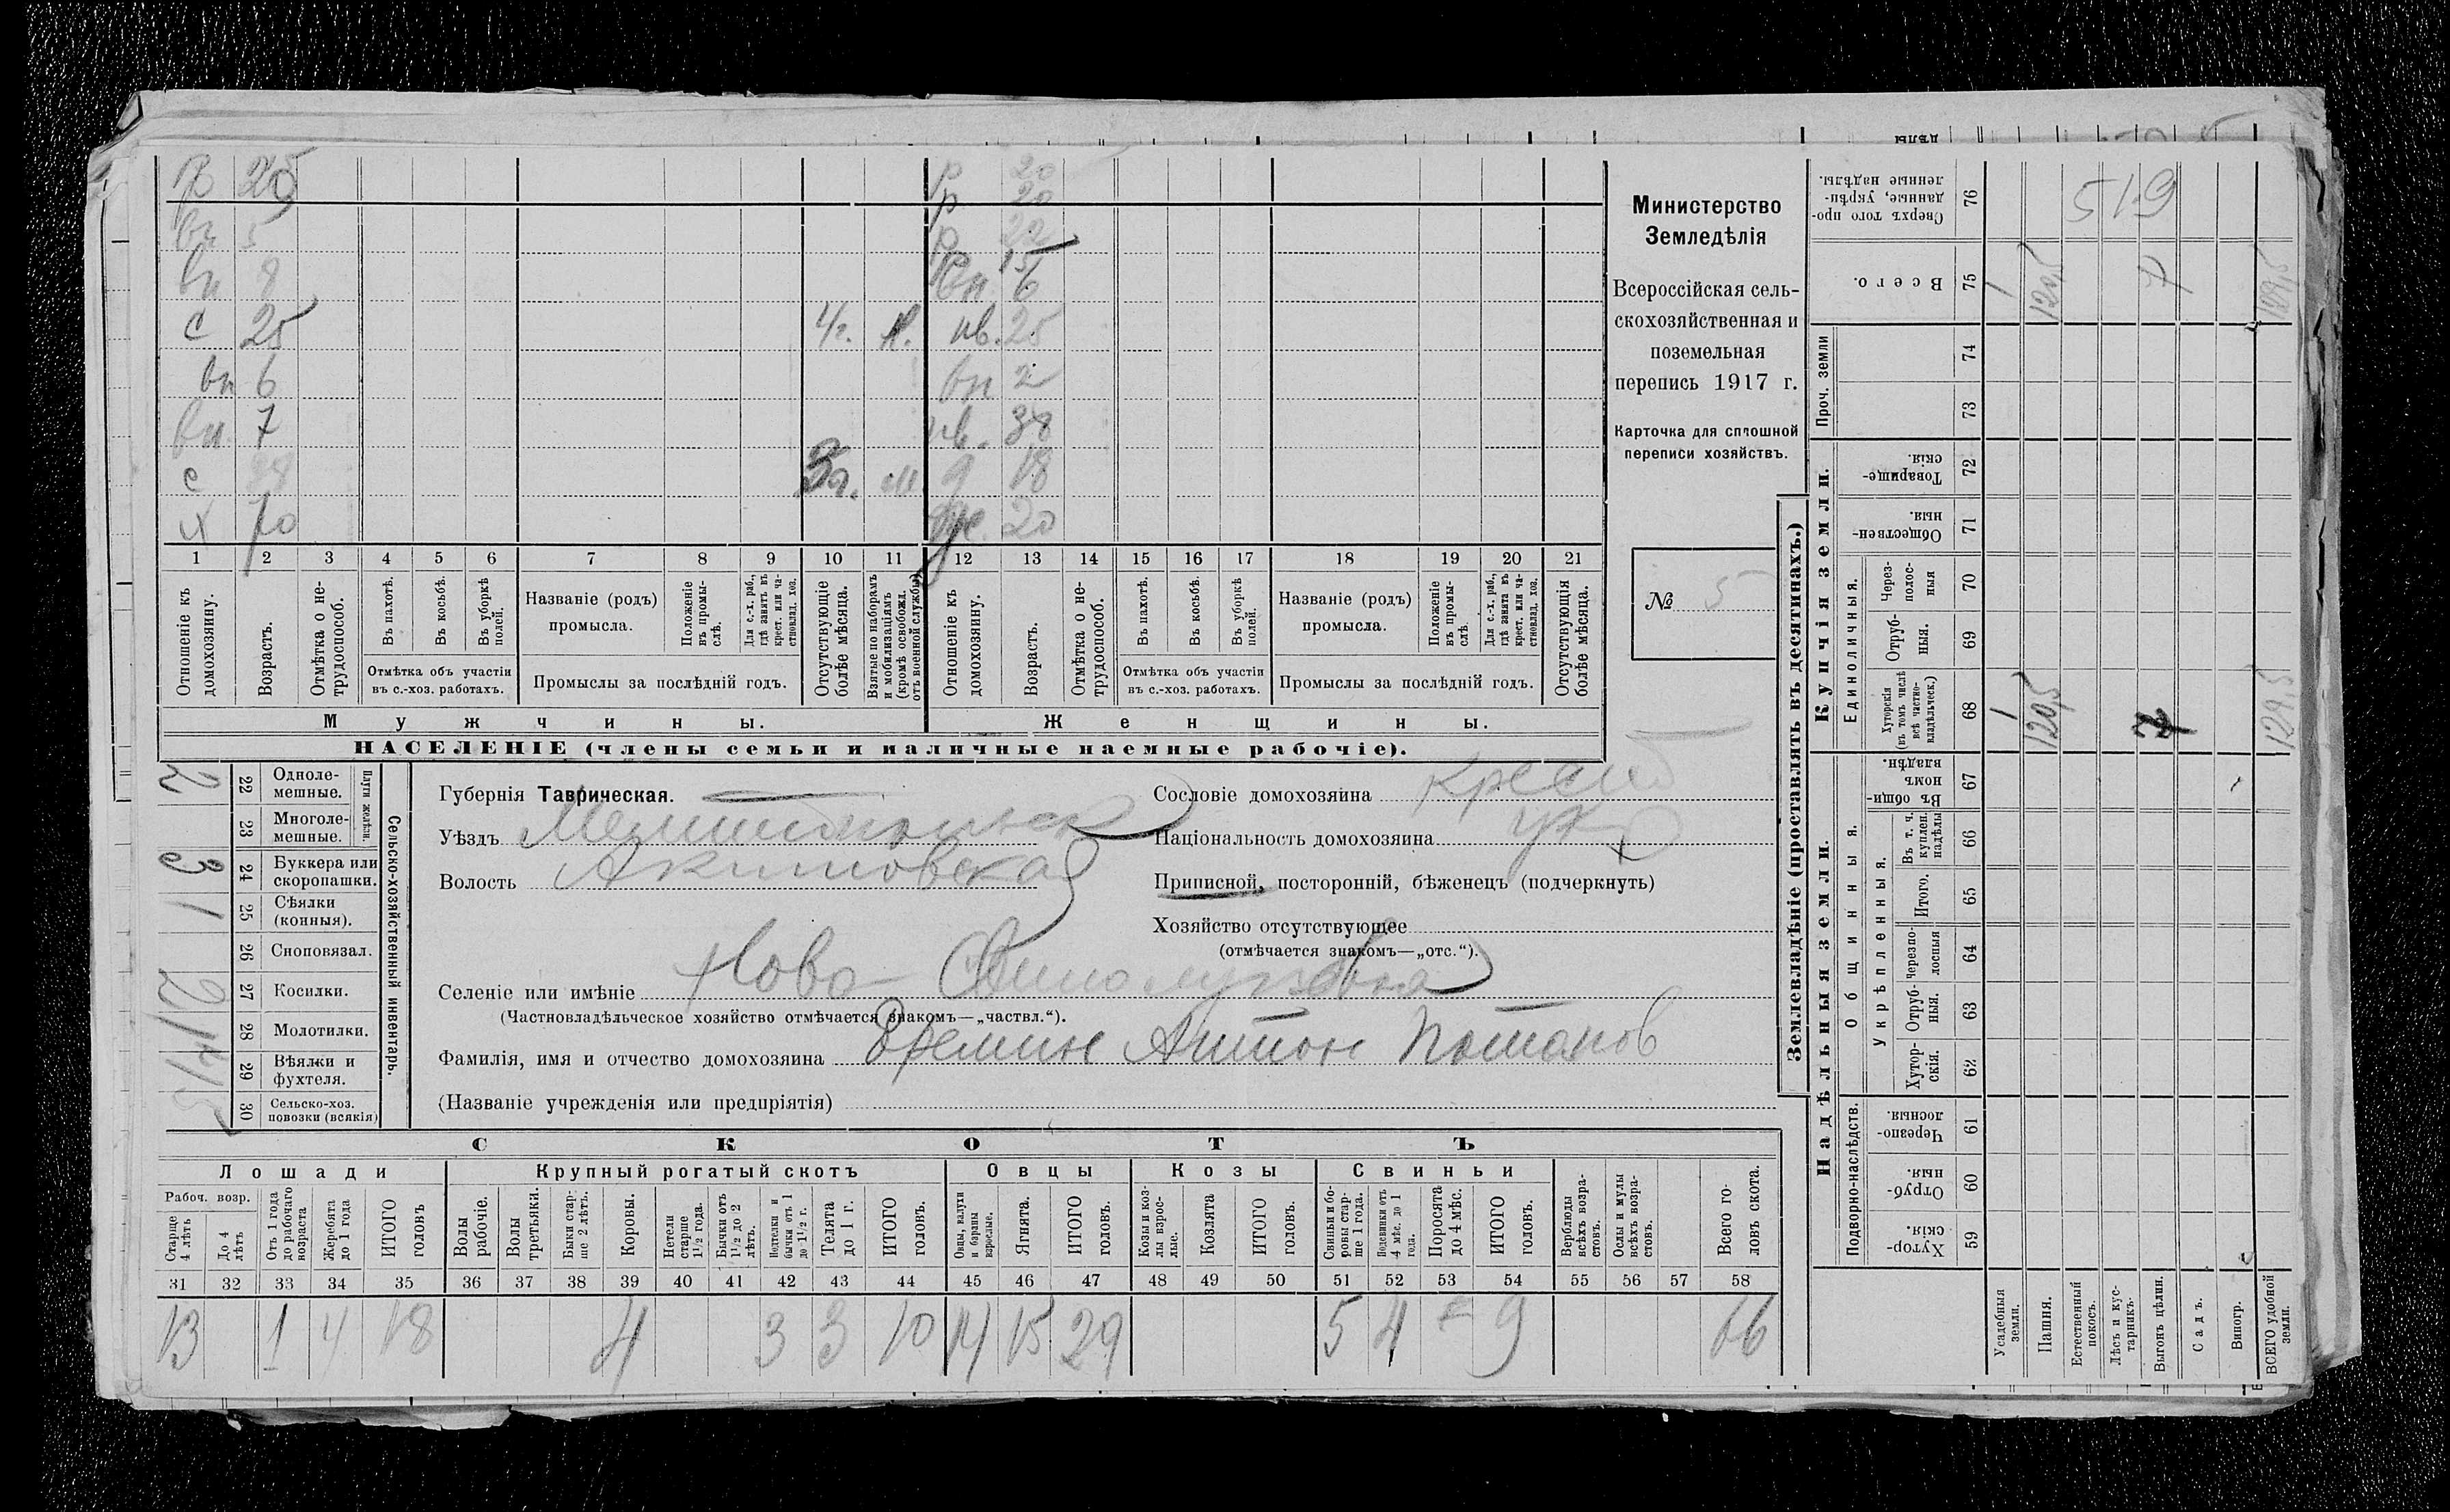 р 20 р 20
р 20
вн 5 р 22
вн 8 вн 6
с 25 4г. м. нв. 25
вн 6 вн 2
вн. 7 нв. 38
с м д 18
х 70 20
1 2 3 4 5 6 7 8 9 10 11 12 13 14 15 16 17 18 19 20 21
Отношеніе къ домохозяину.
Возрастъ.
Отмѣтка о не-трудоспособ.
Въ пахотѣ.
Въ косьбѣ.
Въ уборкѣ полей.
Отмѣтка объ участіи въ с.-хоз. работахъ.
Названіе (родъ) промысла.
Положеніе въ промы-слѣ.
Для с.-х. раб., гдѣ занятъ въ крест. или ча-стновлад. хоз.
Промыслы за послѣдній годъ.
Отсутствующіе болѣе мѣсяца.
Взятые по наборамъ и мобилизаціямъ (кромѣ освобожд. отъ военной службы)
Отношеніе къ домохозяину.
Возрастъ.
Отмѣтка о не-трудоспособ.
Въ пахотѣ.
Въ косьбѣ.
Въ уборкѣ полей.
Отмѣтка объ участіи въ с.-хоз. работахъ.
Названіе (родъ) промысла.
Положеніе въ промы-слѣ.
Для с.-х. раб., гдѣ занята въ крест. или ча-стновлад. хоз.
Промыслы за послѣдній годъ.
Отсутствующія болѣе мѣсяца.
Мужчины. Женщины.
НАСЕЛЕНІЕ (члены семьи и наличные наемные рабочіе).
Министерство
Земледѣлія
Всероссійская сель-
скохозяйственная и
поземельная
перепись 1917 г.
Карточка для сплошной
переписи хозяйствъ.
№ 5
Сельско-хозяйственный инвентарь.
Плуги желѣзн.
22 Одноле-мешные. 2
23 Многоле-мешные.
24 Буккера или скоропашки. 3
25 Сѣялки (конныя). 1
26 Сноповязал.
27 Косилки. 2
28 Молотилки. 1
29 Вѣялки и фухтеля. 1
30 Сельско-хоз. повозки (всякія)
Губернія Таврическая.
Уѣздъ Мелитопольск
Волость Акимовская
Сословіе домохозяина крест
Національность домохозяина укр
Приписной, посторонній, бѣженецъ (подчеркнуть)
Хозяйство отсутствующее
(отмѣчается знакомъ—„отс.“).
Селеніе или имѣніе Ново
(Частновладѣльческое хозяйство отмѣчается знакомъ—„частвл.“).
Фамилія, имя и отчество домохозяина Еремин Антон Потапов
(Названіе учрежденія или предпріятія)
СКОТЪ
Лошади Крупный рогатый скотъ Овцы Козы Свиньи
Рабоч. возр.
Старше 4 лѣтъ
До 4 лѣтъ
Отъ 1 года до рабочаго возраста
Жеребята до 1 года
ИТОГО головъ
Волы рабочіе.
Волы третьяки.
Быки стар-ше 2 лѣтъ.
Коровы.
Нетели старше 1½ года.
Бычки отъ 1½ до 2 лѣтъ.
Подтелки и бычки отъ 1 до 1½ г.
Телята до 1 г.
ИТОГО головъ.
Овцы, валухи и бараны взрослые.
Ягнята.
ИТОГО головъ.
Козы и коз-лы взрос-лые.
Козлята
ИТОГО головъ.
Свиньи и бо-ровы стар-ше 1 года.
Подсвинки отъ 4 мѣс. до 1 года.
Поросята до 4 мѣс.
ИТОГО головъ.
Верблюды всѣхъ возра-стовъ.
Ослы и мулы всѣхъ возра-стовъ.
Всего го-ловъ скота.
31 32 33 34 35 36 37 38 39 40 41 42 43 44 45 46 47 48 49 50 51 52 53 54 55 56 57 58
13 1 4 18 4 3 3 10 14 15 29 5 4 - 9 66
Землевладѣніе (проставлять въ десятинахъ.)
Купчія земли.
Надѣльныя земли.
76 Сверхъ того про-данные, укрѣп-ленные надѣлы. 51.9
75 Всего. 1 120,5 129,5
Проч. земли
74
73
72 Товарище-скія.
71 Обществен-ныя.
Единоличныя.
70 Через-полос-ныя
69 Отруб-ныя.
68 Хуторскія (въ томъ числѣ всѣ частно-владѣльческ.) 1 120,5 129,5
Общинныя.
67 Въ общи-номъ владѣн.
Укрѣпленныя.
66 Въ т. ч. куплен. надѣлы
65 Итого.
64 Черезпо-лосныя
63 Отруб-ныя.
62 Хутор-скія.
Подворно-наслѣдств.
61 Черезпо-лосныя.
60 Отруб-ныя.
59 Хутор-скія.
Усадебныя земли.
Пашня.
Естественный покосъ.
Лѣсъ и кус-тарникъ.
Выгонъ цѣлин.
Садъ.
Виногр.
ВСЕГО удобной земли.